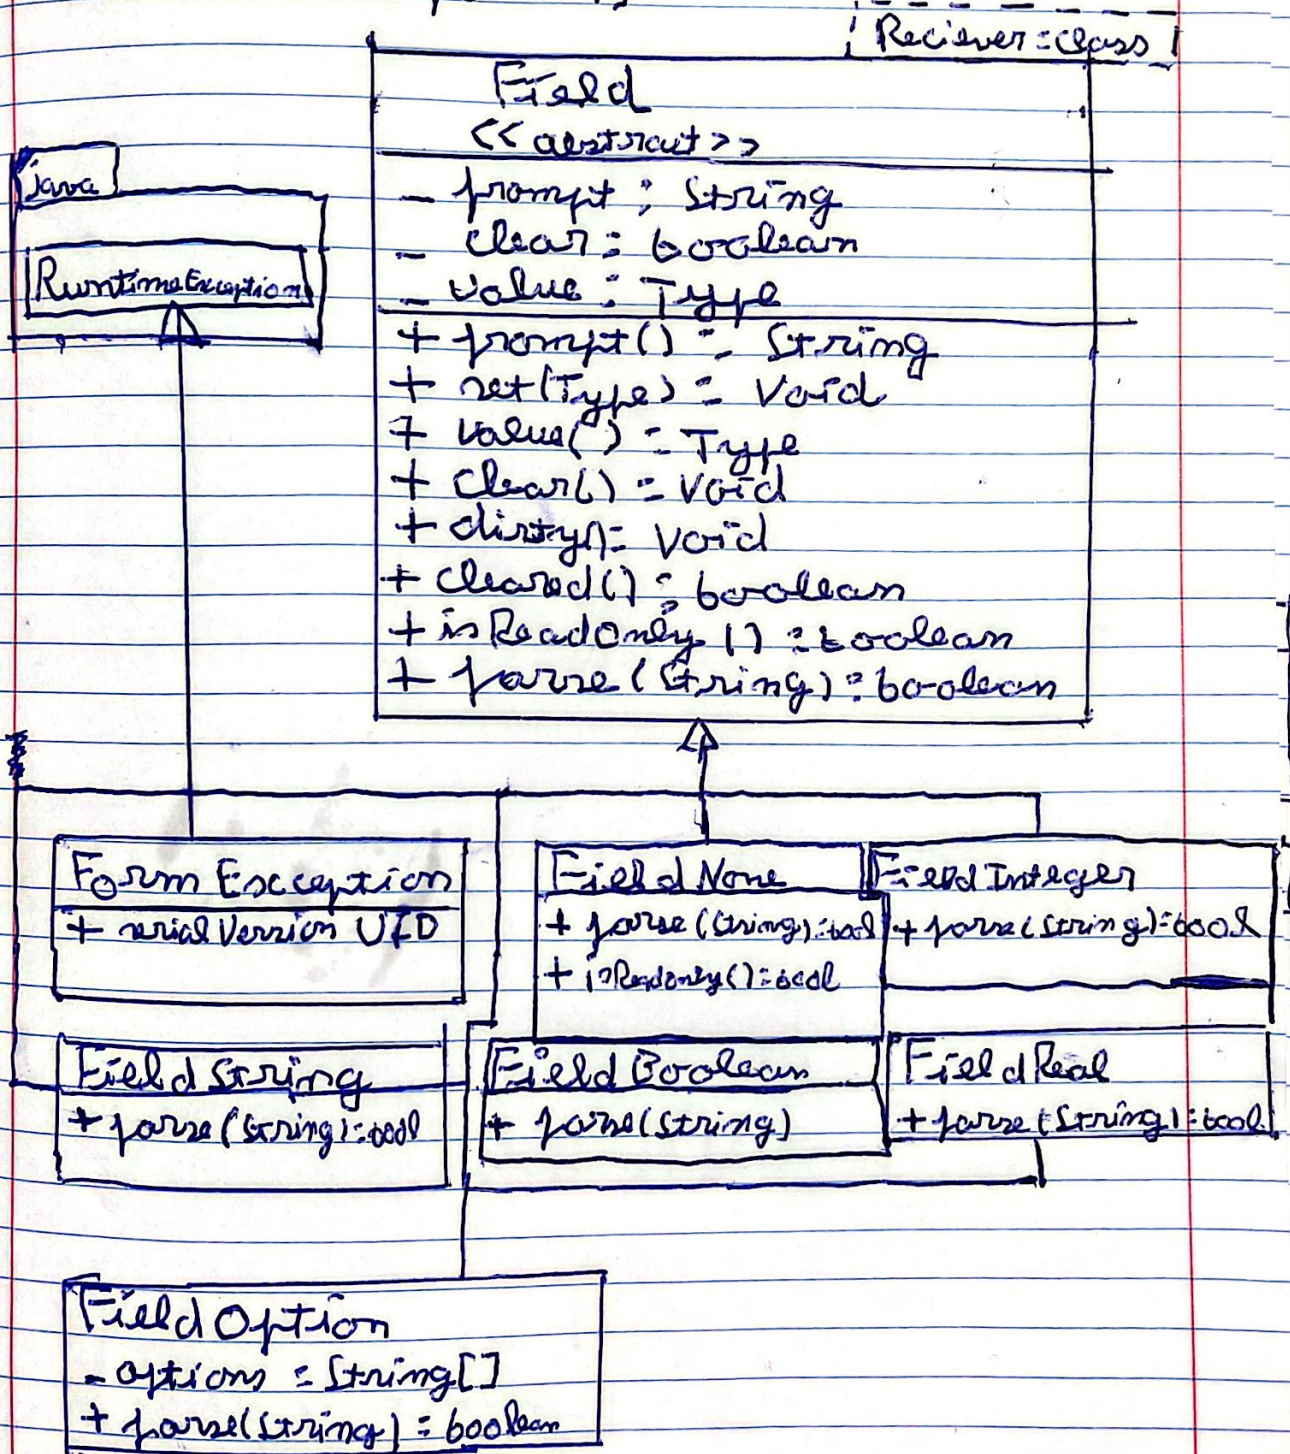 Reciever : class
Field
<< abstract >>
- prompt : String
- clear : boolean
- value : Type
+ prompt() : String
+ set(Type) : Void
+ value() : Type
+ clear() : Void
+ dirty() : Void
+ cleared() : boolean
+ isReadOnly() : boolean
+ parse(String) : boolean
java
RuntimeException
Form Exception
+ serialVersion UID
FieldNone
+ parse(String):bool
+ isReadonly():bool
FieldInteger
+ parse(String):bool
FieldString
+ parse(String):bool
FieldBoolean
+ parse(String)
FieldReal
+ parse(String):bool
FieldOption
- options : String[]
+ parse(String) : boolean